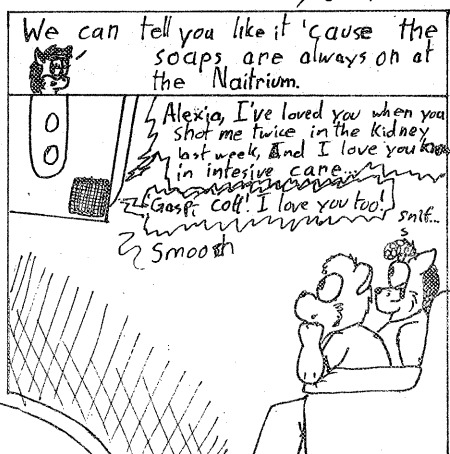 We can tell you like it 'cause the
soaps are always on at
the Naitrium.
Alexia, I've loved you when you
shot me twice in the kidney
last week, And I love you now
in intesive care...
Gasp, coff! I love you too!
snif...
Smooch